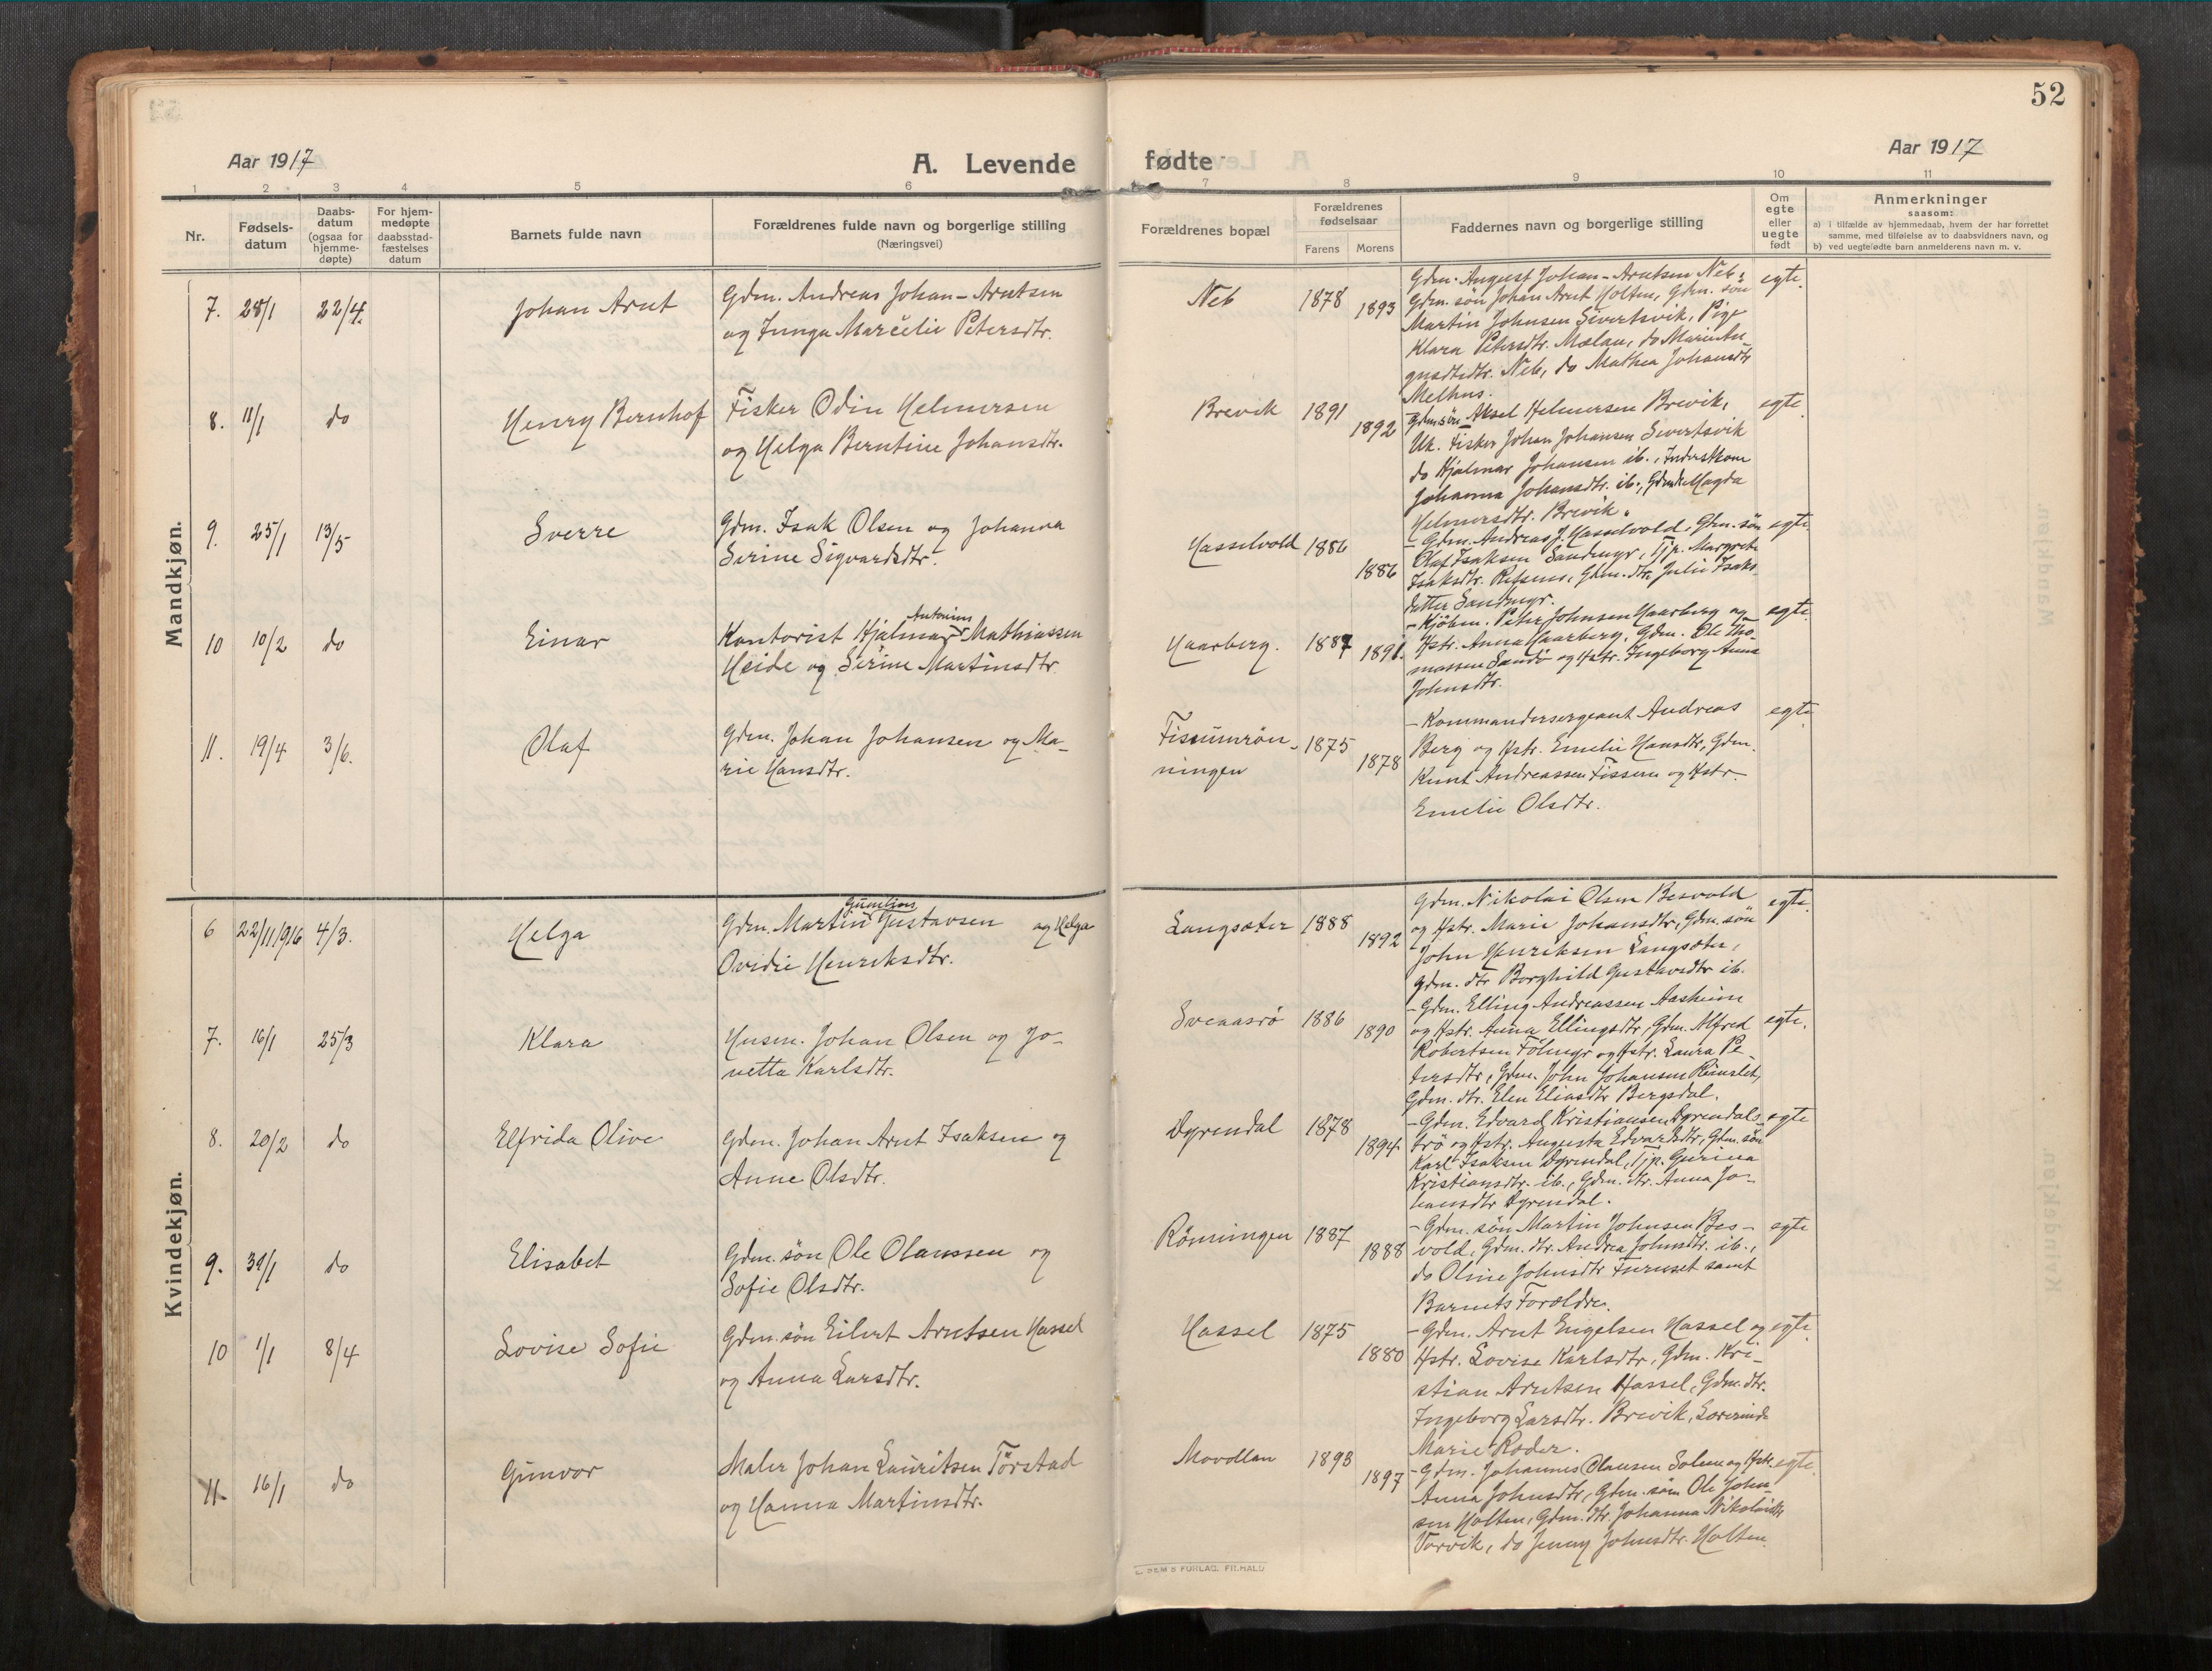 52
Aar 1917
A. Levende
fødte
Aar 1917
1 2 3 4 5 6 7 8 9 10 11
Nr.
Fødsels-
datum
Daabs-
datum
(ogsaa for
hjemme-
døpte)
For hjem-
medøpte
daabsstad-
fæstelses
datum
Barnets fulde navn
Forældrenes fulde navn og borgerlige stilling
(Næringsvei)
Forældrenes bopæl
Forældrenes
fødselsaar
Farens Morens
Faddernes navn og borgerlige stilling
Om
egte
eller
uegte
født
Anmerkninger
saasom:
a) i tilfælde av hjemmedaab, hvem der har forrettet
samme, med tilføielse av to daabsvidners navn, og
b) ved uegtefødte barn anmelderens navn m. v.
Mandkjøn.
7. 28/1 22/4. Johan Arnt
Gdm. Andreas Johan-Arntsen
og Inga Marcelie Petersdtr.
Neb 1878 1893
Gdm. August Johan-Arntsen Neb,
Gdm. søn Johan Arnt Holten, Gdm. søn
Martin Johnsen Sivertsvik, Pige
Klara Petersdtr. Mælan, do Marie Au-
gustsdtr. Neb, do Mathea Johansdtr
Melhus.
egte.
8. 11/1 do Henry Bernhof
Fisker Odin Helmersen
og Helga Berntine Johansdtr.
Brevik 1891 1892
Gdm. søn Aksel Helmersen Brevik,
Uk. Fisker Johan Johansen Sivertsvik
do Hjalmar Johansen ib.,
Johanna Johansdtr. ib., Magda
Helmersdtr. Brevik.
egte.
9. 25/1 13/5 Sverre
Gdm. Isak Olsen og Johanna
Serine Sigvardsdtr.
Hasselvold 1886 1886
- Gdm. Andreas J. Hasselvold, Gdm. søn
Olaf Isaksen Sandmyr, Tjp. Margrete
Isaksdtr. Refsnes, Gdm. dtr. Julie Isaks-
datter Sandmyr.
egte.
10 10/2 do Einar
Antonius
Kontorist Hjalmar Mathiassen
Heide og Serine Martinsdtr.
Haarberg. 1887 1891.
- Kjøbm. Peter Johnsen Haarberg og
Hstr. Anna Haarberg, Gdm. Ole Tho-
massen Sandø og Hstr. Ingeborg Anna
Johnsdtr.
egte.
11. 19/4 3/6. Olaf
Gdm. Johan Johansen og Ma-
rie Hansdtr.
Fissumrøn-
ningen
1875 1878
- Kommandersergeant Andreas
Berg og Hstr. Emelie Hansdtr, Gdm.
Knut Andreassen Fissum og Hstr.
Emelie Olsdtr.
egte.
Kvindekjøn.
6 22/11 1916 4/3. Helga
Gdm. Martin Gustavsen og Helga
Ovidie Henriksdtr.
Langsæter 1888 1892
Gdm. Nikolai Olsen Besvold
og Hstr. Marie Johansdtr, Gdm. søn
John Henriksen Langsæter,
Gdm. dtr Borghild Gustavsdtr ib.
egte.
7. 16/1 25/3 Klara
Husm. Johan Olsen og Jo-
netta Karlsdtr.
Svenasrø 1886 1890
- Gdm. Elling Andreassen Aasheim
og Hstr. Anna Ellingsdtr, Gdm. Alfred
Robertsen Følmyr og Hstr. Laura Pe-
tersdtr, Gdm. John Johansen
Gdm. dtr. Elen Eliasdtr Bergsdal.
egte.
8. 20/2 do Elfrida Olive
Gdm. Johan Arnt Isaksen og
Anne Olsdtr.
Dyrendal 1878 1894
- Gdm. Edvard Kristiansen Dyrendals-
trø og Hstr. Augusta Edvardsdtr, Gdm. søn
Karl Isaksen Dyrendal, Tjp. Gurina
Kristiansdtr. ib., Gdm. dtr. Anna Jo-
hansdtr Dyrendal.
egte
9. 31/1 do Elisabet
Gdm. søn Ole Olaussen og
Sofie Olsdtr.
Rønningen 1887 1888
- Gdm. søn Martin Johnsen Bes-
vold, Gdm. dtr. Andrea Johnsdtr. ib.,
do Oline Johnsdtr Furuset samt
Barnets Forældre.
egte
10 1/1 8/4 Lovise Sofie
Gdm. søn Eilert Arntsen Hassel
og Anna Larsdtr.
Hassel 1875 1880
- Gdm. Arnt Engelsen Hassel og
Hstr. Lovise Karlsdtr, Gdm. Kri-
stian Arntsen Hassel, Gdm. dtr.
Ingeborg Larsdtr. Brevik,
Marie Roder.
egte.
11. 16/1 do Gunvor
Maler Johan Lauritsen Tørstad
og Hanna Martinsdtr.
Movollan 1893 1897
- Gdm. Johannes Olausen Solem og Hstr.
Anna Johnsdtr, Gdm. søn Ole John-
sen Holten, Gdm. dtr. Johanna Nikolaisdtr
Vorvik, do Jenny Johnsdtr. Holten.
egte.